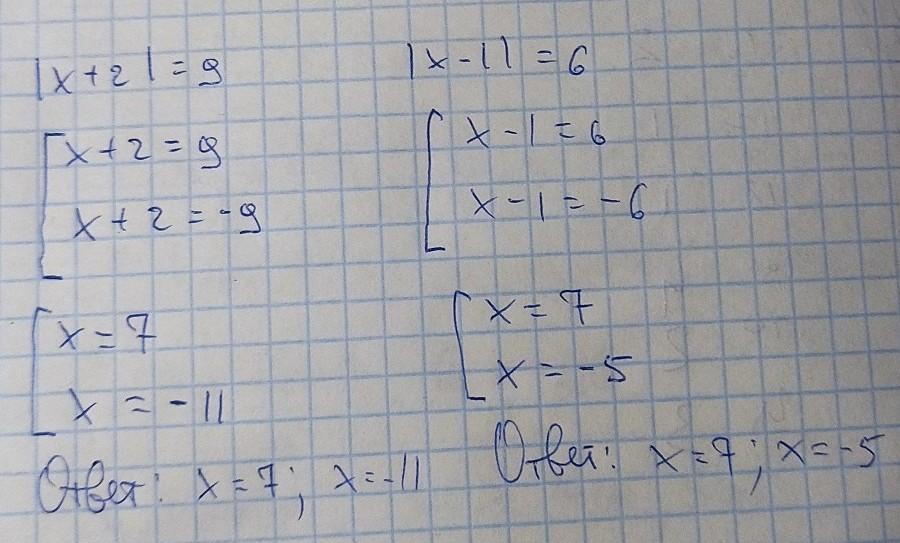 |x+2|=9
x+2=9
x+2=-9
x=7
x=-11
Ответ: x=7; x=-11
|x-1|=6
x-1=6
x-1=-6
x=7
x=-5
Ответ: x=7; x=-5